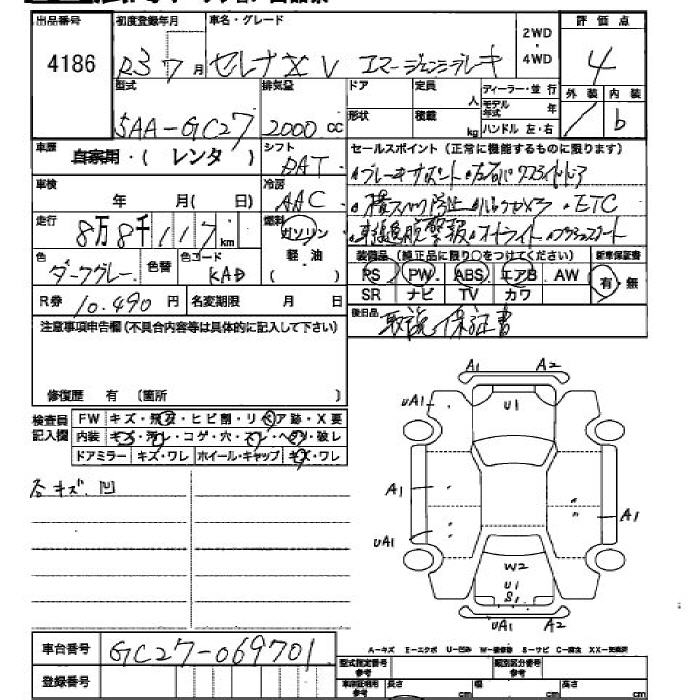 出品番号 初度登録年月 車名・グレード 2WD・4WD 評価点
4186 R3 7月 セレナ XV エマージェンシーブレーキ 4
型式 排気量 ドア 定員 人 ディーラー・並行 外装 内装
5AA-GC27 2000cc 形状 積載 kg モデル年式 年 ハンドル 左・右 b
車歴 自家用・(レンタ) シフト DAT セールスポイント(正常に機能するものに限ります)
車検 年 月( 日) 冷房 AAC
・バックカメラ ・ETC
走行 8万8千117km 燃料 ガソリン 軽油 ( )
・車線逸脱警報 ・オートライト ・プッシュスタート
色 ダークグレー 色替 色コード KAD
装備品(純正品に限り○をつけてください) 新車保証書
PS PW ABS エアB AW 有・無
SR ナビ TV カワ
R券 10.490円 名変期限 月 日
後日品 取説 保証書
注意事項申告欄(不具合内容等は具体的に記入して下さい)
修復歴 有 (箇所 )
検査員記入欄 FW キズ・飛石・ヒビ割・リペア跡・X要
内装 キズ・汚レ・コゲ・穴・スレ・ヘタリ・破レ
ドアミラー キズ・ワレ ホイール・キャップ キズ・ワレ
各キズ.凹
A1 A2
UA1 U1
A1 A1
UA1 W2
U1
S1
UA1 A2
A-キズ E-エクボ U-凹み W-補修跡 S-サビ C-腐食 XX-交換済
車台番号 GC27-069701
型式指定番号 参考 類別区分番号 参考
登録番号 車体証明用 参考 長さ cm 幅 cm 高さ cm